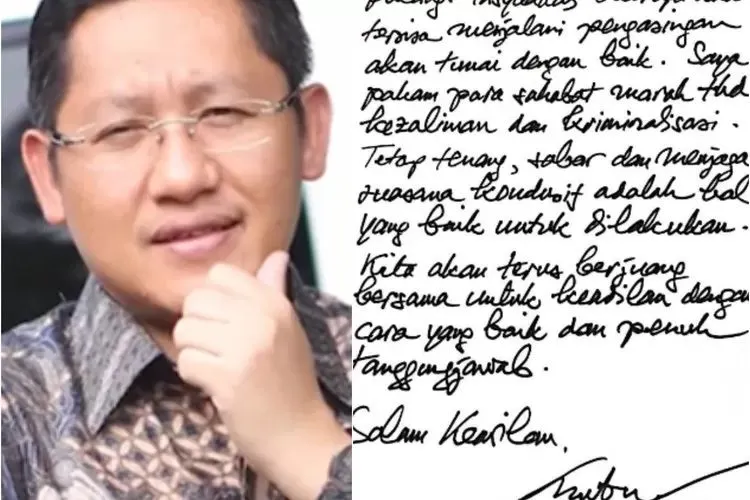 tersisa menjalani pengasingan
akan tunai dengan baik. Saya
paham para sahabat marah thd
kezaliman dan kriminalisasi.
Tetap tenang, sabar dan menjaga
suasana kondusif adalah hal
yang baik untuk dilakukan.
Kita akan terus berjuang
bersama untuk keadilan dengan
cara yang baik dan penuh
tanggungjawab.
Salam Keadilan.